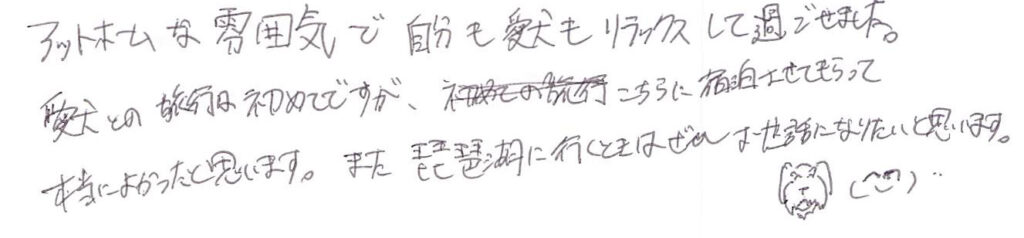 アットホームな雰囲気で自分も愛犬もリラックスして過ごせました。
愛犬との旅行は初めてですが、初めての旅行こちらに宿泊させてもらって
本当によかったと思います。また琵琶湖に行くときはぜひお世話になりたいと思います。
(^^)